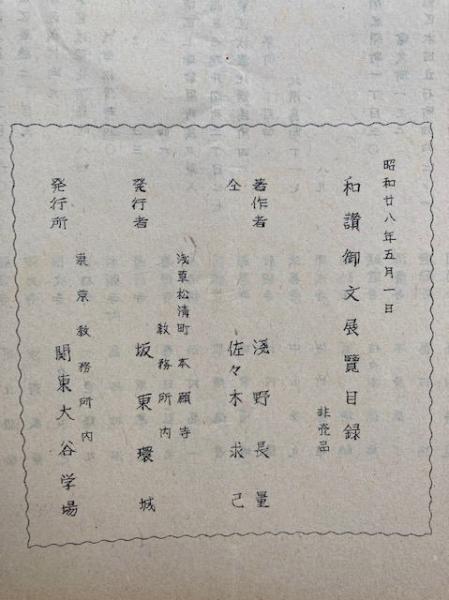 昭和廿八年五月一日
和讃御文展覧目録
非売品
著作者 浅野長量
仝 佐々木求己
浅草松清町 本願寺
教務所内
発行者 坂東環城
東京教務所内
発行所 関東大谷学場